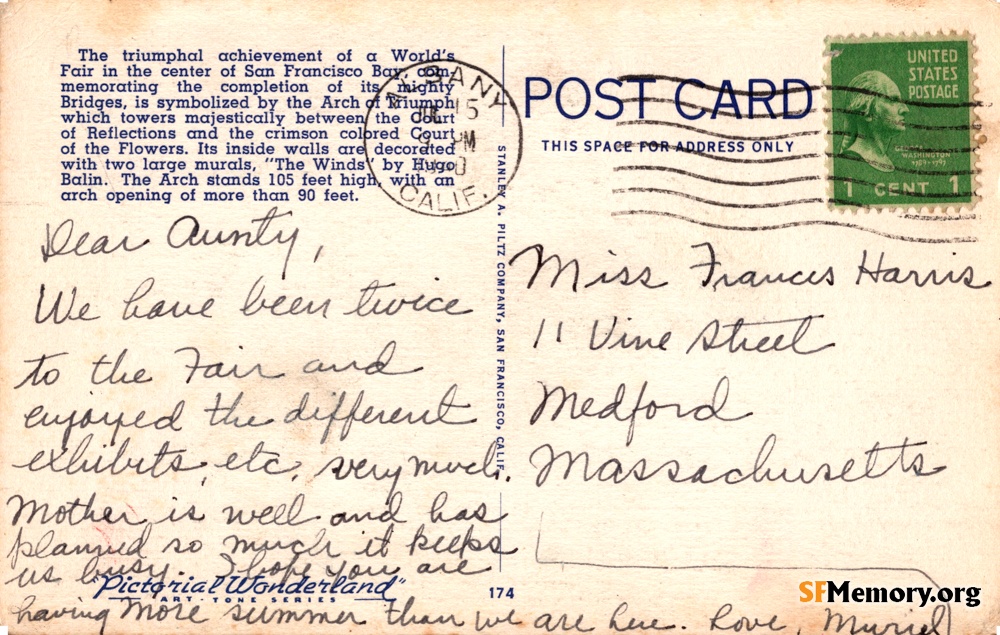 The triumphal achievement of a World's
Fair in the center of San Francisco Bay, com-
memorating the completion of its mighty
Bridges, is symbolized by the Arch of Triumph
which towers majestically between the Court
of Reflections and the crimson colored Court
of the Flowers. Its inside walls are decorated
with two large murals, "The Winds" by Hugo
Balin. The Arch stands 105 feet high, with an
arch opening of more than 90 feet.
ALBANY
15
PM
CALIF.
POST CARD
THIS SPACE FOR ADDRESS ONLY
UNITED
STATES
POSTAGE
WASHINGTON
1789-1797
1 CENT 1
STANLEY A. PILTZ COMPANY, SAN FRANCISCO, CALIF.
Dear Aunty,
We have been twice
to the Fair and
enjoyed the different
exhibits, etc, very much.
Mother is well and has
planned so much it keeps
us busy. I hope you are
having more summer than we are here. Love, Muriel
Miss Frances Harris
11 Vine Street
Medford
Massachusetts
"Pictorial Wonderland"
ART TONE SERIES
174
SFMemory.org